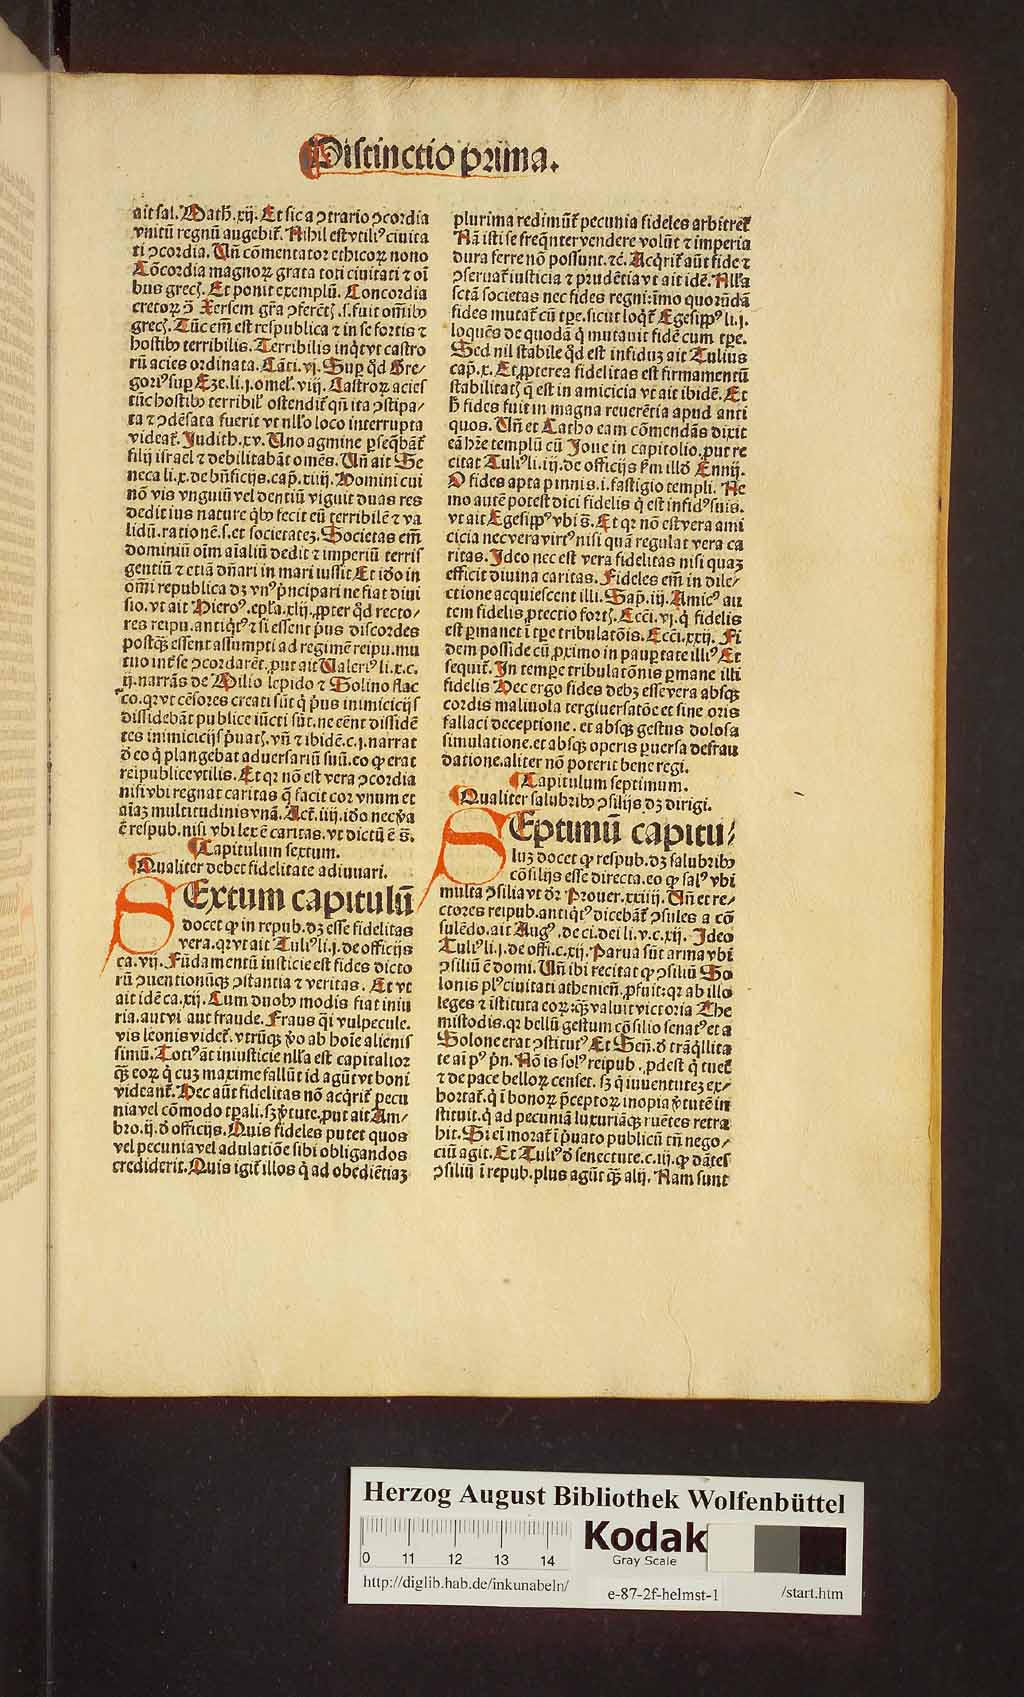 Distinctio prima.
ait sal. Math. xij. Et sic a ↄtrario ↄcordia
vnitū regnū augebit᷑. Nihil est vtiliꝰ ciuita
ti ↄcordia. Vn̄ cōmentator ethicoꝝ nono
Cōcordia magnoꝝ grata toti ciuitati ⁊ oī
bus grecꝭ. Et ponit exemplū. Concordia
cretoꝝ ↄ̄ Xersem gr̄a ↄferētꝭ.s. fuit om̄ibꝰ
grecꝭ. Tūc em̄ est respublica ⁊ in se fortis ⁊
hostibꝰ terribilis. Terribilis inq̄t vt castro
rū acies ordinata. Cāti. vj. Suꝑ qd̄ Gre⸗
goriꝰ suꝑ Eze. li. j. omel᷑. viij. Castroꝝ acies
tūc hostibꝰ terribil᷑ ostendit᷑ qn̄ ita ↄstipa⸗
ta ⁊ ↄdēsata fuerit vt nll̄o loco interrupta
videat᷑. Judith. xv. Uno agmine ꝑseq̄bāt᷑
filij israel ⁊ debilitabāt omēs. Vn̄ ait Se
neca li. x. de bn̄ficijs. cap̄. xiiij. Homini cui
nō vis vnguiū vel dentiū viguit duas res
dedit ius nature qͥbꝰ fecit eū terribilē ⁊ va
lidū. rationē.s. et societatez. Societas em̄
dominiū oīm aīaliū dedit ⁊ imperiū terris
gentiū ⁊ etiā dn̄ari in mari iussit Et iđo in
om̄i republica dꝫ vnꝰ pͥncipari ne fiat diui
sio. vt ait Hieroꝰ. epl̄a. xlij. ꝓpter qd̄ recto⸗
res reipu. antiqͥtꝰ ⁊ si essent pͥus discordes
postqꝫ̄ essent assumpti ad regimē reipu. mu
tuo int᷑ se ↄcordarēt. ꝓut ait Valeriꝰ li. x. c.
ij. narrās de Milio lepido ⁊ Solino flac
co. qꝛ vt cēsores creati sūt q̄ pͥus inimicicijs
dissidebāt publice iūcti sūt. ne eēnt dissidē
tes inimicicijs pͥuatꝭ. vn̄ ⁊ ibidē. c. j. narrat
ꝺ̄ eo q̄ plangebat aduersariū suū. eo ꝙ erat
reipublice vtilis. Et qꝛ nō est vera ↄcordia
nisi vbi regnat caritas q̄ facit cor vnum et
aīaꝫ multitudinis vnā. Act᷑. iiij. iđo nec ꝟa
ē respub. nisi vbi lex ē caritas. vt dictū ē s̄.
Capitulum sextum.
Qualiter debet fidelitate adiuuari.
SExtum capitulū
docet ꝙ in repub. dꝫ esse fidelitas
vera. qꝛ vt ait Tuliꝰ li. j. de officijs
ca. vij. Fūdamentū iusticie est fides dicto
rū ↄuentionūqꝫ ↄstantia ⁊ veritas. Et vt
ait idē ca. xij. Cum duobꝰ modis fiat iniu
ria. aut vi aut fraude. Fraus q̄i vulpecule.
vis leonis videt᷑. vtrūqꝫ ꝟo ab hoīe alienis
simū. Totiꝰ āt iniusticie nll̄a est capitalior
qꝫ̄ eoꝝ q̄ cuꝫ maxime fallūt id agūt vt boni
videant᷑. Hec aūt fidelitas nō acqͥrit᷑ pecu
nia vel cōmodo tꝑali. sꝫ ꝟtute. ꝓut ait Am⸗
bro. ij. ꝺ̄ officijs. Quis fideles putet quos
vel pecunia vel adulatiōe sibi obligandos
crediderit. Quis igit᷑ illos q̄ ad obediētiaꝫ
plurima redimūt᷑ pecunia fideles arbitret᷑
Nā isti se freq̄nter vendere volūt ⁊ imperia
dura ferre nō possunt. ⁊c̄. Acqͥrit᷑ aūt fide ⁊
ↄseruat᷑ iusticia ⁊ prudētia vt ait idē. Null̄a
sctā societas nec fides regni: īmo quorūdā
fides mutat᷑ cū tꝑe. sicut loqͥt᷑ Egesippꝰ li. j.
loquēs de quodā q̄ mutauit fidē cum tꝑe.
Sed nil stabile qd̄ est infiduꝫ ait Tulius
cap̄. x. Et ꝓpterea fidelitas est firmamentū
stabilitatꝭ q̄ est in amicicia vt ait ibidē. Et
h̄ fides fuit in magna reuerētia apud anti
quos. Vn̄ et Catho eam cōmendās dixit
eā hr̄e templū cū Joue in capitolio. ꝓut re
citat Tuliꝰ li. iij. de officijs ẜm illđ Ennij.
O fides apta pinnis.i. fastigio templi. Ne
mo autē potest dici fidelis q̄ est infidꝰ suis.
vt ait Egesippꝰ vbi s̄. Et qꝛ nō est vera ami
cicia nec vera virtꝰ nisi quā regulat vera ca
ritas. Ideo nec est vera fidelitas nisi quaꝫ
efficit diuina caritas. Fideles em̄ in dile⸗
ctione acquiescent illi. Sap̄. iij. Amicꝰ au
tem fidelis ꝓtectio fortꝭ. Ecci. vj. q̄ fidelis
est ꝑmanet ī tꝑe tribulatōis. Ecci. xxij. Fi
dem posside cū ꝓximo in pauꝑtate illiꝰ Et
sequit᷑. In tempꝑe tribulatōnis ꝑmane illi
fidelis Hec ergo fides debꝫ esse vera absqꝫ
cordis maliuola tergiuersatōe et sine oris
fallaci deceptione. et absqꝫ gestus dolosa
simulatione. et absqꝫ operis ꝑuersa defrau
datione. aliter nō poterit bene regi.
Capitulum septimum.
Qualiter salubribꝰ ↄsilijs dꝫ dirigi.
SEptimū capitu⸗
luꝫ docet ꝙ respub. dꝫ salubribꝰ
cōsilijs esse directa. eo ꝙ salꝰ vbi
multa ↄsilia vt dr̄. Prouer. xxiiij. Vn̄ et re⸗
ctores reipub. antiqͥtꝰ dicebāt᷑ ↄsules a cō
sulēdo. ait Augꝰ. de ci. dei li. v. c. xij. Ideo
Tuliꝰ li. j. de offi. c. xij. Parua sūt arma vbi
ↄsiliū ē domi. Vn̄ ibi recitat ꝙ ↄsiliū So
lonis plꝰ ciuitati atheniēn̄. ꝓfuit: qꝛ ab illo
leges ⁊ īstituta coꝝ: qꝫ̄ valuit victoria The
mistodis. qꝛ bellū gestum cōsilio senatꝰ et a
Solone erat ↄstitutꝰ Et Sen̄. ꝺ̄ trāq̄llita
te ai pꝰ pͥn. Nō is solꝰ reipub. ꝓdest q̄ tuet᷑
⁊ de pace belloꝝ censet. sꝫ q̄ iuuentuteꝫ ex⸗
hortat᷑. q̄ ī bonoꝝ p̄ceptoꝝ inopia ꝟtutē in
stituit. q̄ ad pecuniā luxuriāqꝫ ruētes retra
hit. Si ei morat᷑ ī pͥuato publicū tn̄ nego⸗
ciū agit. Et Tuliꝰ ꝺ̄ senectute. c. iij. ꝙ dātes
ↄsiliū ī repub. plus agūt qꝫ̄ alij. Nam sunt
Herzog August Bibliothek Wolfenbüttel
0 11 12 13 14
Kodak
Gray Scale
http://diglib.hab.de/inkunabeln/
e-87-2f-helmst-1
/start.htm